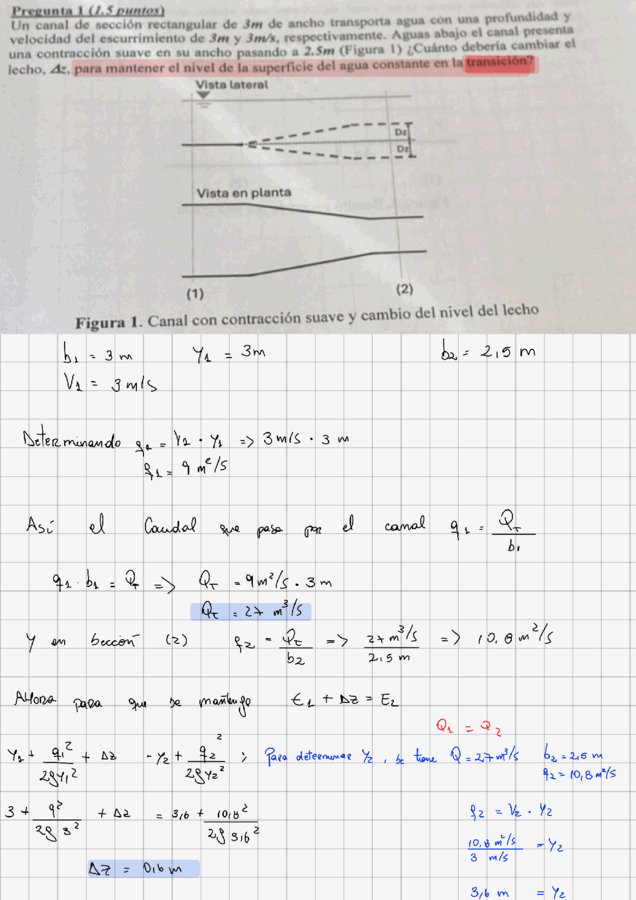 Pregunta 1 (1.5 puntos)
Un canal de sección rectangular de 3m de ancho transporta agua con una profundidad y
velocidad del escurrimiento de 3m y 3m/s, respectivamente. Aguas abajo el canal presenta
una contracción suave en su ancho pasando a 2.5m (Figura 1) ¿Cuánto debería cambiar el
lecho, Δz, para mantener el nivel de la superficie del agua constante en la transición?
Vista lateral
Dz
Dz
Vista en planta
(1)
(2)
Figura 1. Canal con contracción suave y cambio del nivel del lecho
b₁ = 3 m y₁ = 3m b₂ = 2,5 m
V₁ = 3 m/s
Determinando q₁ = V₁ · y₁ => 3 m/s · 3 m
q₁ = 9 m²/s
Así el Caudal que pasa por el canal q₁ = Q_T / b₁
q₁ · b₁ = Q_T => Q_T = 9 m²/s · 3 m
Q_T = 27 m³/s
Y en sección (2) q₂ = Q_T / b₂ => 27 m³/s / 2,5 m => 10,8 m²/s
Ahora para que se mantenga E₁ + Δz = E₂
Q₁ = Q₂
y₁ + q₁² / 2g y₁² + Δz - y₂ + q₂² / 2g y₂² ; Para determinar y₂, se tiene Q = 27 m³/s b₂ = 2,5 m
q₂ = 10,8 m²/s
3 + 9² / 2g 3² + Δz = 3,6 + 10,8² / 2g 3,6²
q₂ = V₂ · y₂
10,8 m²/s / 3 m/s = y₂
Δz = 0,6 m
3,6 m = y₂